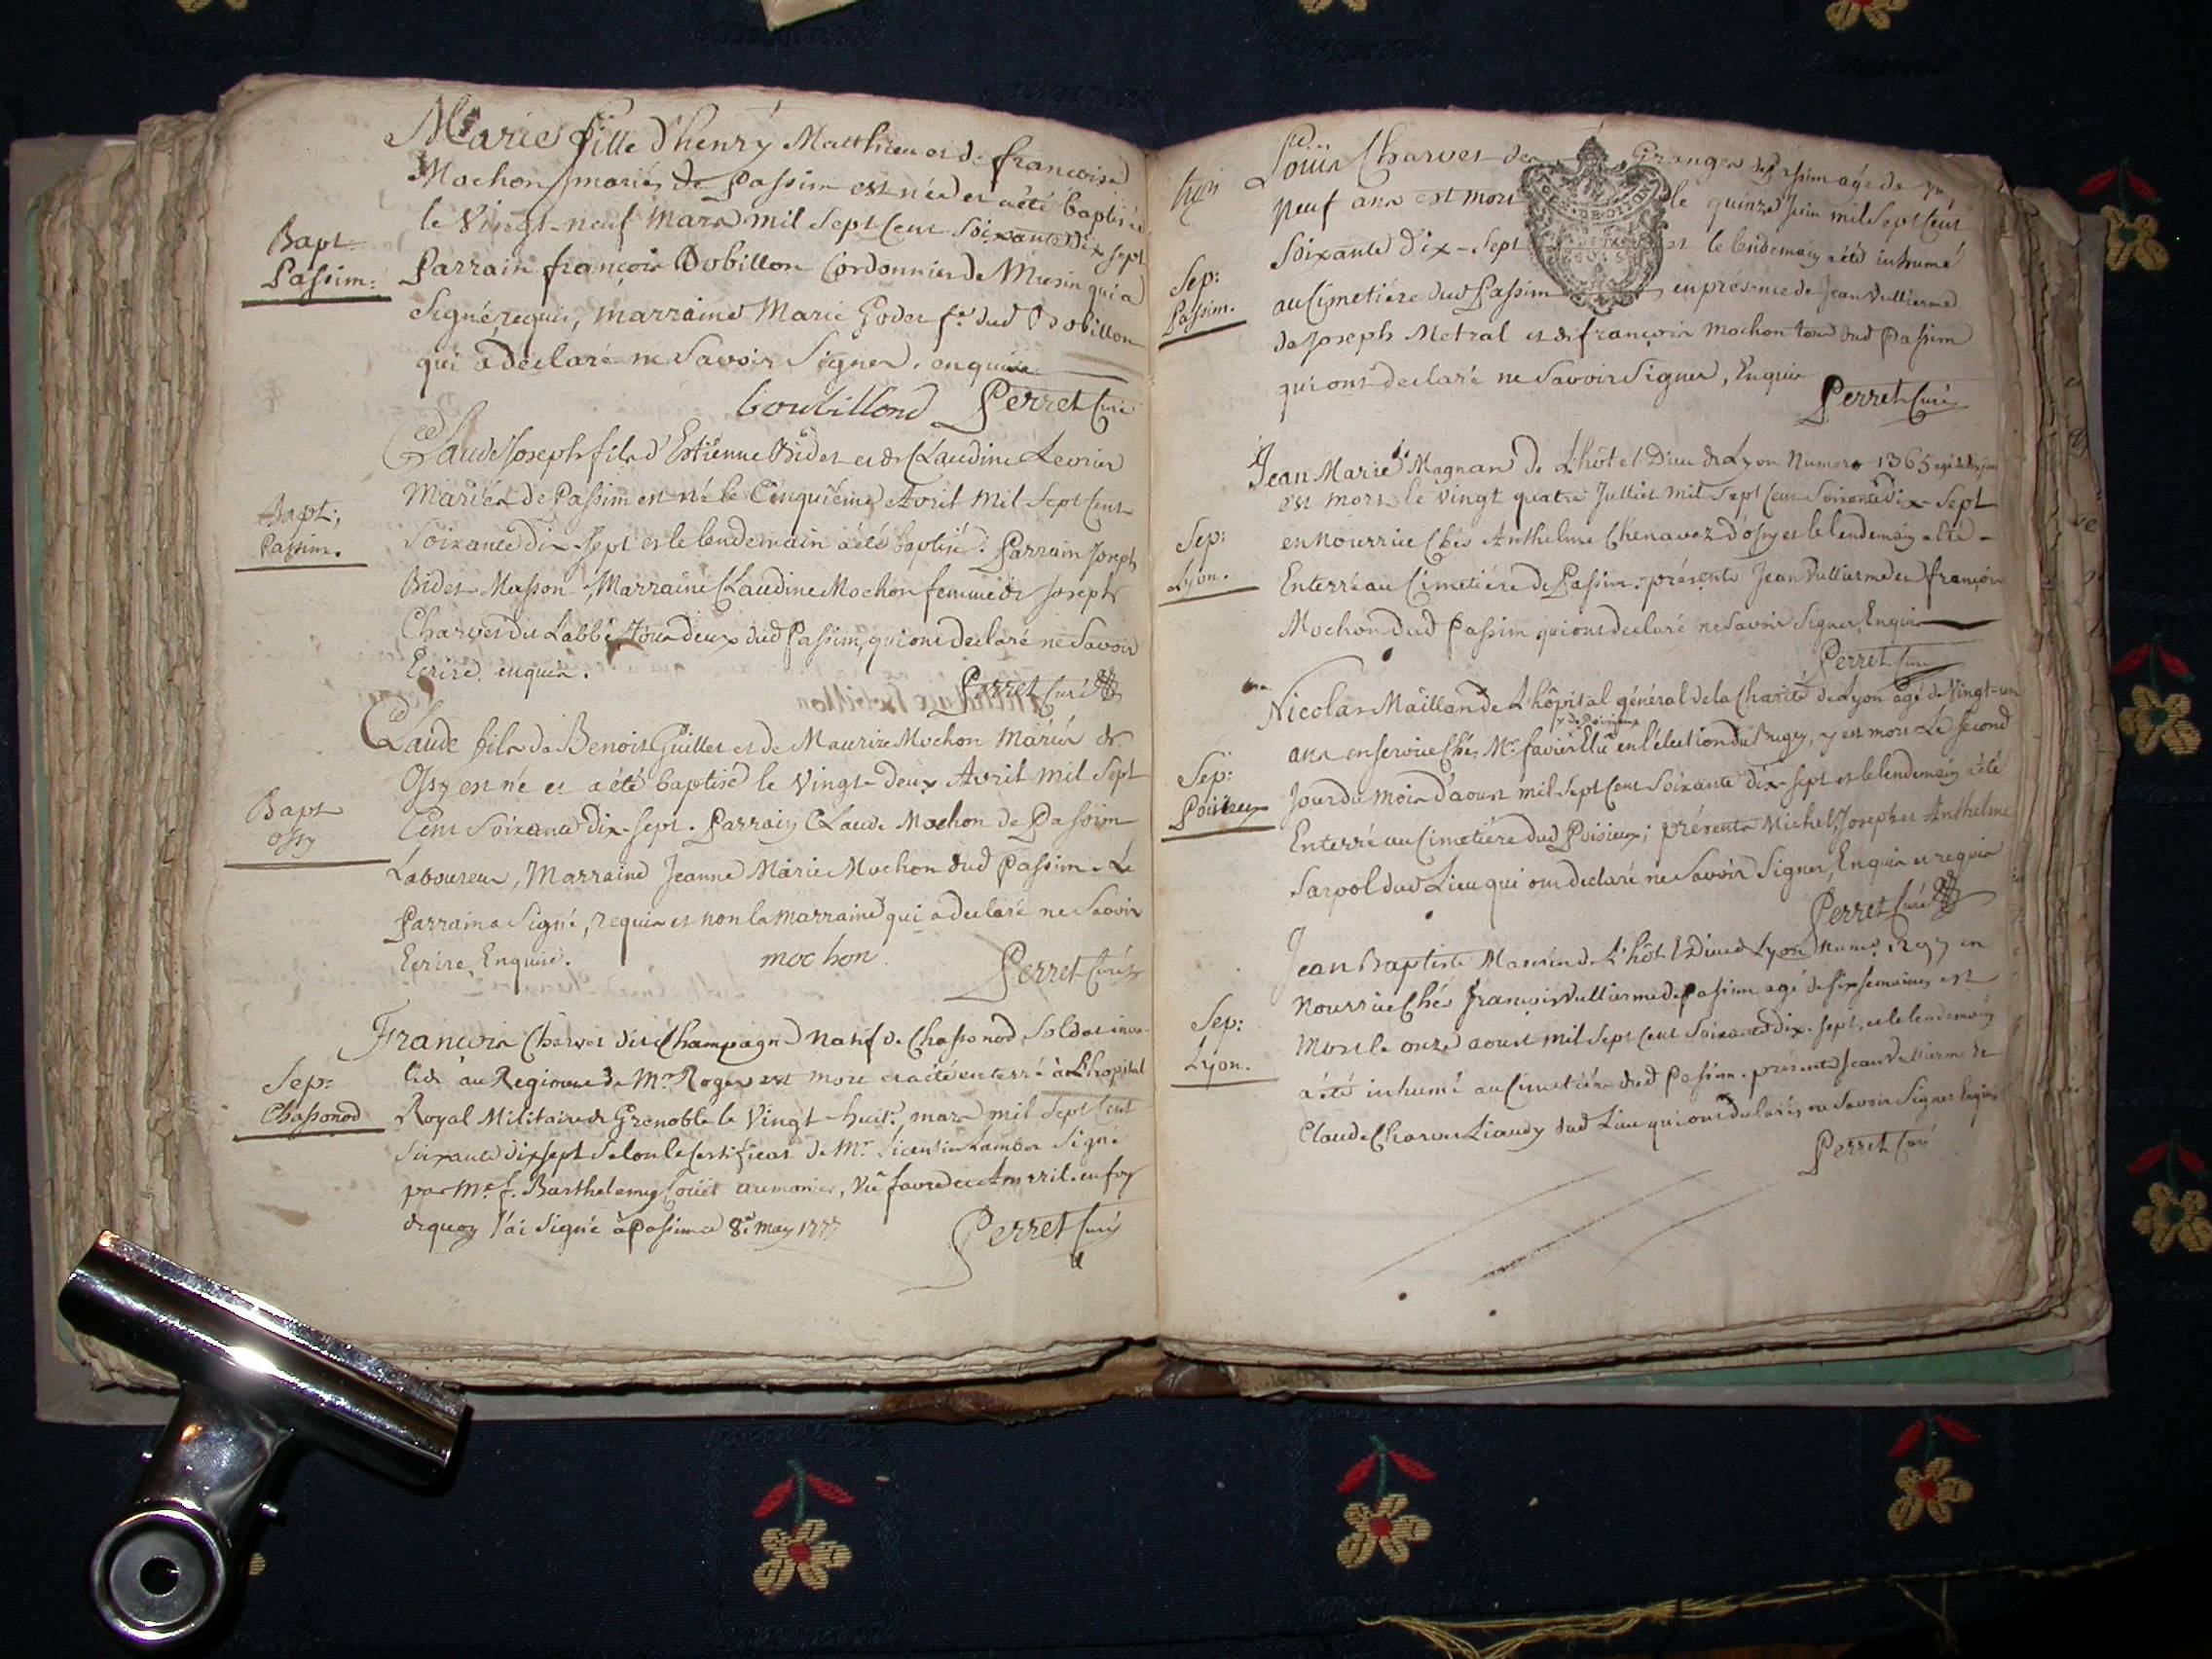 Marie fille d'henry Matthieu et de françoise
Mochon mariés de Passim est née et a été baptisée
le Vingt-neuf Mars mil sept Cent Soixante dix sept
Bapt
Passim:
Parrain françois Bobillon Cordonnier de Musin qui a
Signé requis, marraine Marie Godet fe dud Bobillon
qui a declaré ne Savoir Signer, enquise
boubillond Perret Curé
Claude Joseph fils d'Estienne Bidet et de Claudine Levrier
Bapt:
Passim.
Mariés de Passim est né le Cinquième Avril Mil Sept Cent
Soixante dix-sept et le lendemain a été baptisé. Parrain Joseph
Bidet Masson, Marraine Claudine Mochon femme de Joseph
Charvet du Labbé tous deux dud Passim, qui ont declaré ne Savoir
Ecrire enquis.
Perret Curé
Claude fils de Benoit Guillet et de Maurize Mochon Mariés de
Ossy est né et a été baptisé le Vingt-deux Avril mil Sept
Bapt
ossy
Cent Soixante Dix-sept. Parrain Claude Mochon de Passim
Laboureur, Marraine Jeanne Marie Mochon dud Passim. Le
Parrain a Signé, requis et non la marraine qui a declaré ne Savoir
Ecrire, Enquise.
mochon
Perret Curé
François Charvet dit Champagne Natif de Chassonod, Soldat inva-
Sep:
Chassonod
lide au Regiment de Mr Roger est mort et a été enterré à L'hopital
Royal Militaire de Grenoble le Vingt-huit mars mil Sept Cent
Soixante dix sept Selon le Certificat de Mr Signé
par Me f. Barthelemy Couët aumonier, en foy
de quoy J'ai Signé à Passim ce 8e May 1777
Perret Curé
Louis Charvet des Granges de Passim agé de
neuf ans est mort le quinze Juin mil Sept Cent
Soixante Dix-Sept et le lendemain a été inhumé
Sep:
Passim.
au Cimetière dud Passim en présence de Jean Vullierme
de Joseph Metral et de françois Mochon tous dud Passim
qui ont declaré ne Savoir Signer, Enquis
Perret Curé
Jean Marie Magnan de L'hôtel Dieu de Lyon Numero 1365
est mort le vingt quatre Juillet mil Sept Cent Soixante Dix-Sept
Sep:
Lyon.
en Nourrice Chés Anthelme Chenavez d'ossy et le lendemain a été
Enterré au Cimetière de Passim. présents Jean Vullierme et françois
Mochon dud Passim qui ont declaré ne Savoir Signer, Enquis
Perret Curé
Nicolas Maillan de L'hôpital général de la Charité de Lyon agé de Vingt-un
ans en service Chés Mr favier Elû en l'élection du Bugey, y est mort Le Second
Sep:
Poisieux
Jour du mois d'aoust mil Sept Cent Soixante dix-sept et le lendemain a été
Enterré au Cimetière dud Poisieux; présents Michel, Joseph et Anthelme
Sarvol dud Lieu qui ont declaré ne Savoir Signer, Enquis et requis
Perret Curé
Jean Baptiste de L'hôtel Dieu de Lyon numero 1297 en
Nourrice Chés François Vullierme de Passim agé de Six semaines est
Sep:
Lyon.
Mort le onze aoust mil Sept Cent Soixante Dix-sept, et le lendemain
a été inhumé au Cimetière dud Passim. présents Jean Vullierme et
Claude Charvet Liaudy dud Lieu qui ont declaré ne Savoir Signer Enquis
Perret Curé